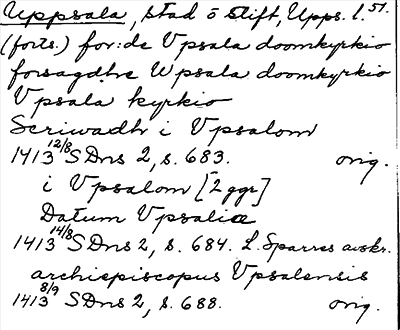 Uppsala, stad o stift, Upps. l. 51.
(forts.) for:de Vpsala doomkyrkio
forsagdhe Wpsala doomkyrkio
Vpsala kyrkio
Scriwadh i Vpsalom
1413 12/8 SDns 2, s. 683. orig.
i Vpsalom [2 ggr]
Datum Vpsalie
1413 14/8 SDns 2, s. 684. L. Sparres avskr.
archiepiscopus Vpsalensis
1413 8/9 SDns 2, s. 688. orig.